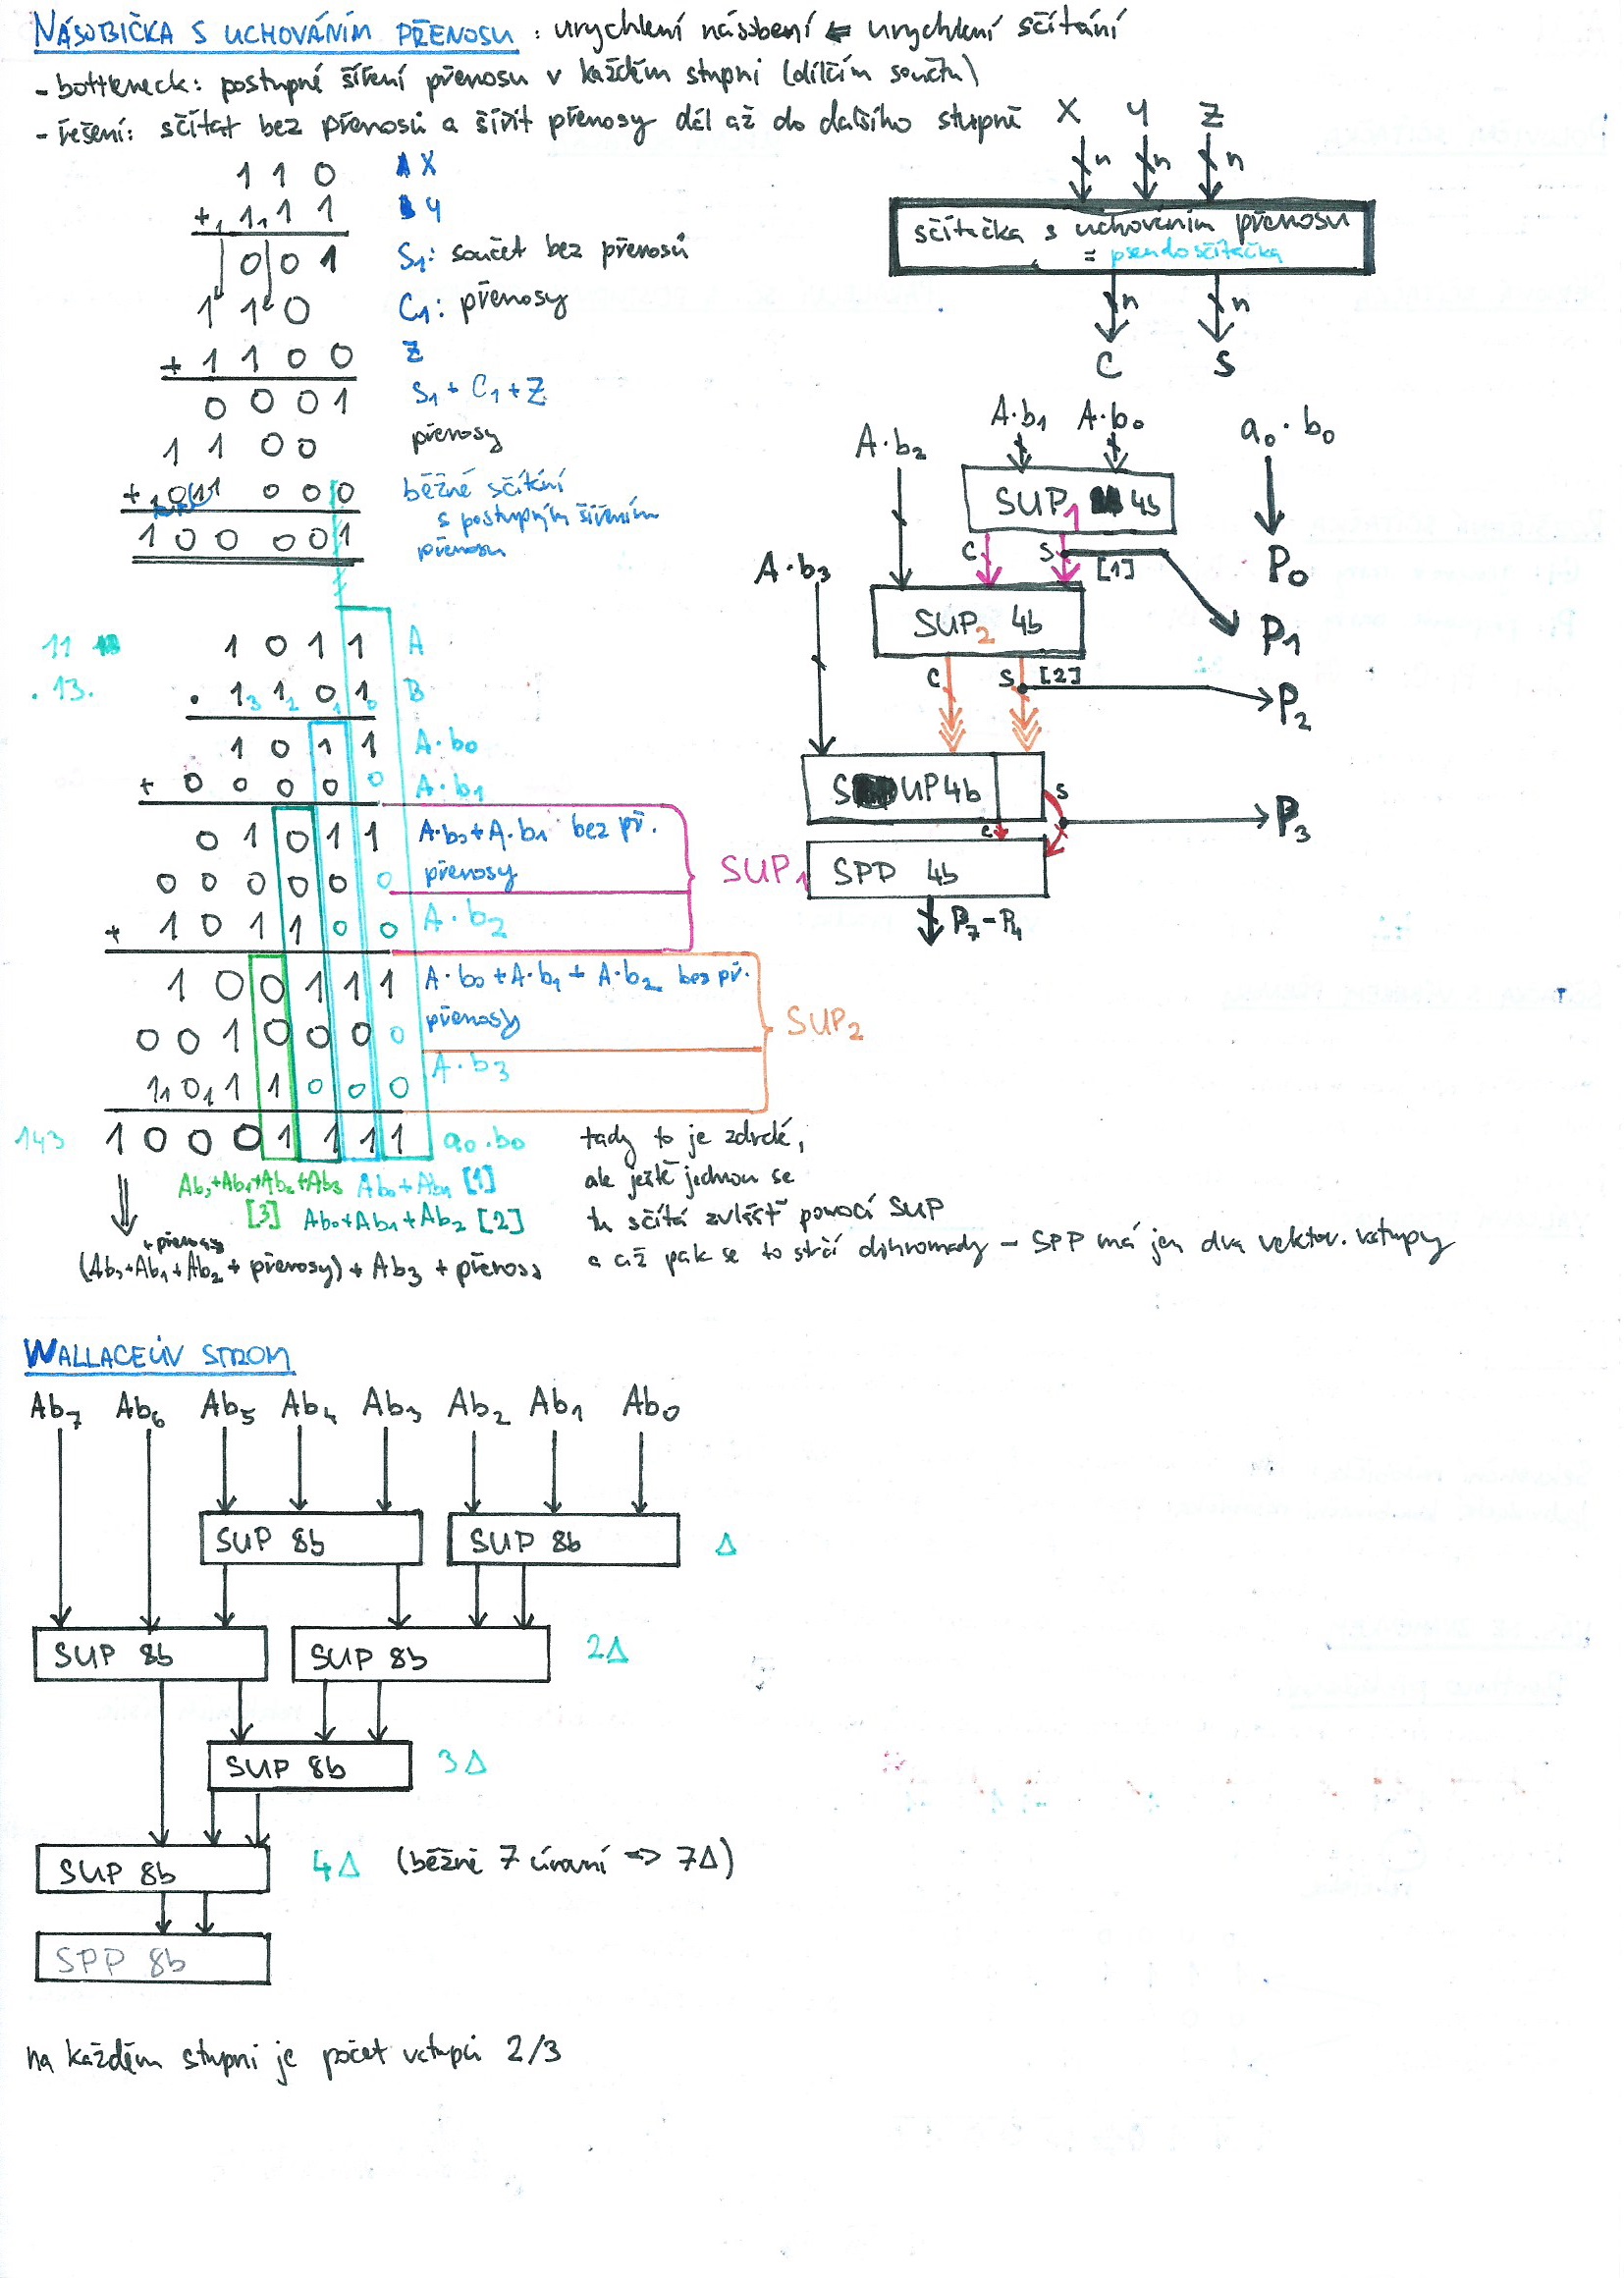 NÁSOBIČKA S UCHOVÁNÍM PŘENOSU : urychlení násobení ⇐ urychlení sčítání
- bottleneck: postupné šíření přenosu v každém stupni (dílčím součtu)
- řešení: sčítat bez přenosů a šířit přenosy dál až do dalšího stupně
1 1 0 X
+ 1 1 1 1 1 Y
0 0 1 S1: součet bez přenosů
1 1 0 C1: přenosy
+ 1 1 0 0 Z
0 0 0 1 S1 + C1 + Z
1 1 0 0 přenosy
+ 1 0 1 1 0 0 0 běžné sčítání
s postupným šířením
přenosu
1 0 0 0 0 1
X Y Z
n n n
sčítačka s uchováním přenosu
= pseudosčítačka
n n
C S
11 1 0 1 1 A
. 13. · 1 3 1 2 0 1 1 0 B
1 0 1 1 A·b0
+ 0 0 0 0 0 A·b1
0 1 0 1 1 A·b0 + A·b1 bez př.
0 0 0 0 0 0 přenosy
+ 1 0 1 1 0 0 A·b2
SUP1
1 0 0 1 1 1 A·b0 + A·b1 + A·b2 bez př.
0 0 1 0 0 0 0 přenosy
1 1 0 1 1 1 0 0 0 A·b3
SUP2
143 1 0 0 0 1 1 1 1 a0·b0
Ab0+Ab1+Ab2+Ab3 Ab0+Ab1 [1]
[3] Ab0+Ab1+Ab2 [2]
+ přenosy
(Ab0+Ab1+Ab2 + přenosy) + Ab3 + přenosy
tady to je zdrclé,
ale ještě jednou se
tu sčítá zvlášť pomocí SUP
a až pak se to strčí dohromady – SPP má jen dva vektor. vstupy
A·b2 A·b1 A·b0 a0·b0
SUP1 4b
C S [1] P0
A·b3
SUP2 4b P1
C S [2] P2
SUP 4b S
C P3
SPP 4b
P7-P4
WALLACEŮV STROM
Ab7 Ab6 Ab5 Ab4 Ab3 Ab2 Ab1 Ab0
SUP 8b SUP 8b Δ
SUP 8b SUP 8b 2Δ
SUP 8b 3Δ
SUP 8b 4Δ (běžně 7 úrovní => 7Δ)
SPP 8b
na každém stupni je počet vstupů 2/3